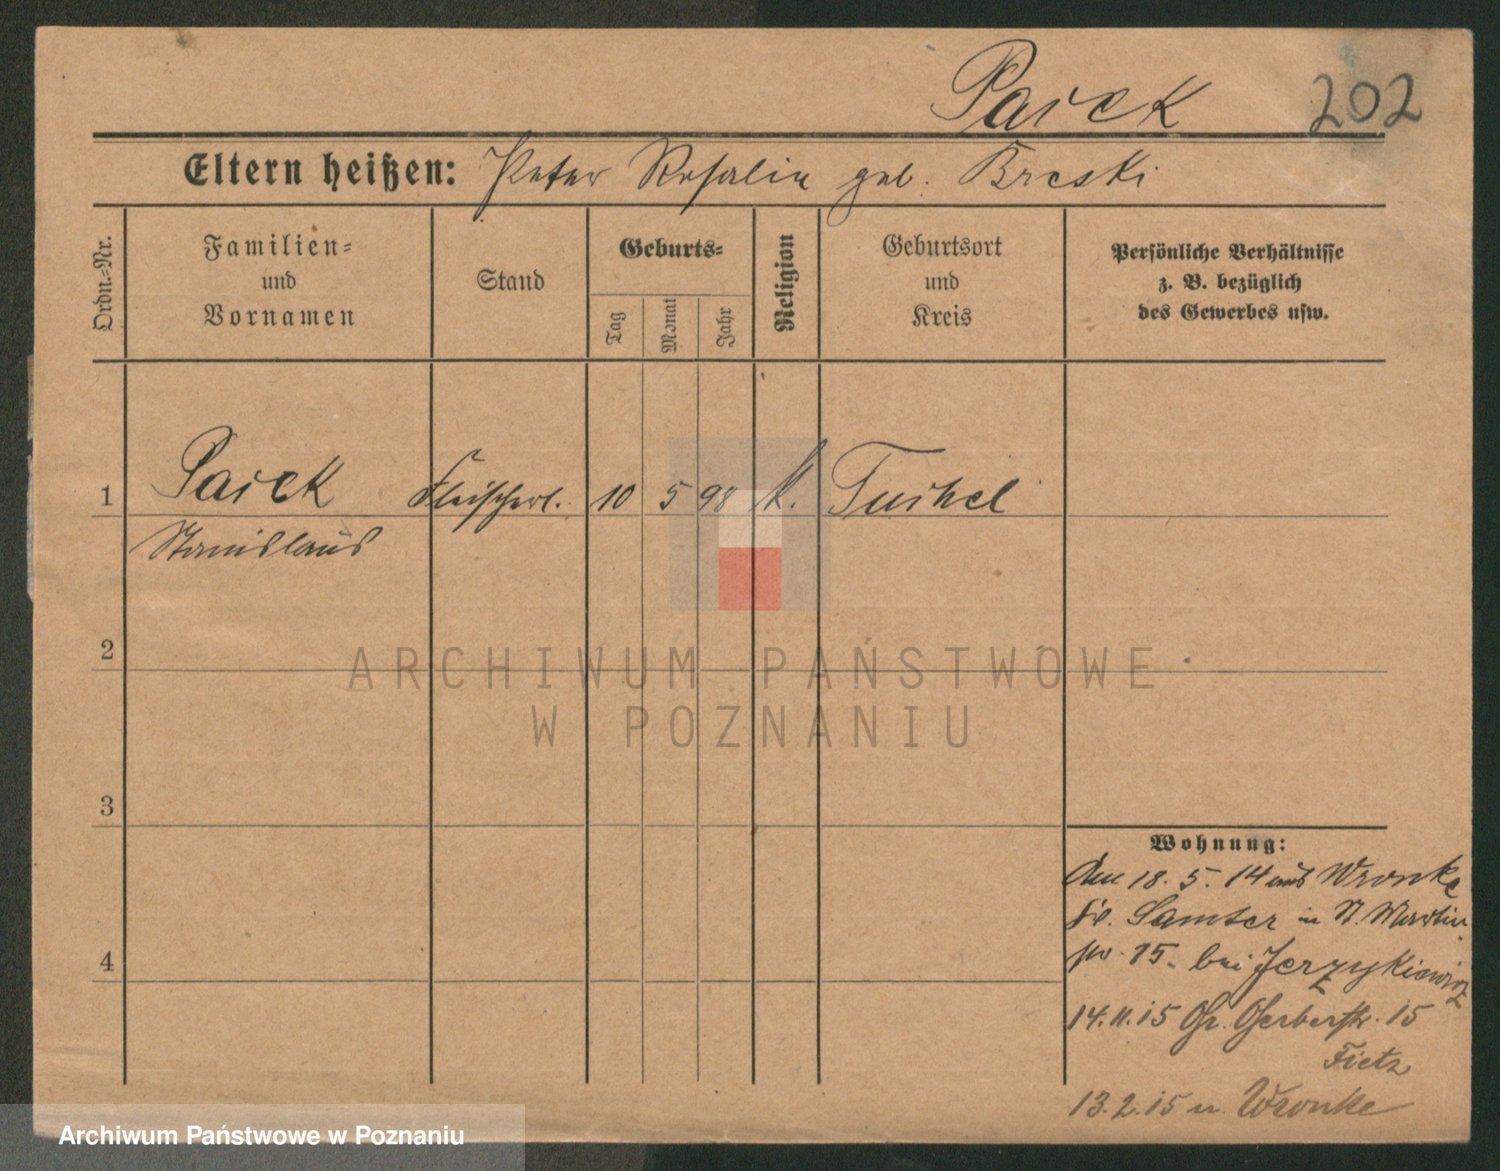 Paick 202
Eltern heißen: Peter Rosalie geb. Breski
Ordn.=Nr.
Familien=
und
Vornamen
Stand
Geburts=
Tag
Monat
Jahr
Religion
Geburtsort
und
Kreis
Persönliche Verhältnisse
z. B. bezüglich
des Gewerbes usw.
1 Paick Fleischerl. 10 5 98 k. Tuchel
Stanislaus
2
3
4
Wohnung:
Am 18. 5. 14 aus Wronke
Kr. Samter in St. Martin
15. bei Jerzykiewicz
14.11.15 Gr. Gerberstr. 15
Fietz
13.2.15 n. Wronke
ARCHIWUM PAŃSTWOWE
W POZNANIU
Archiwum Państwowe w Poznaniu